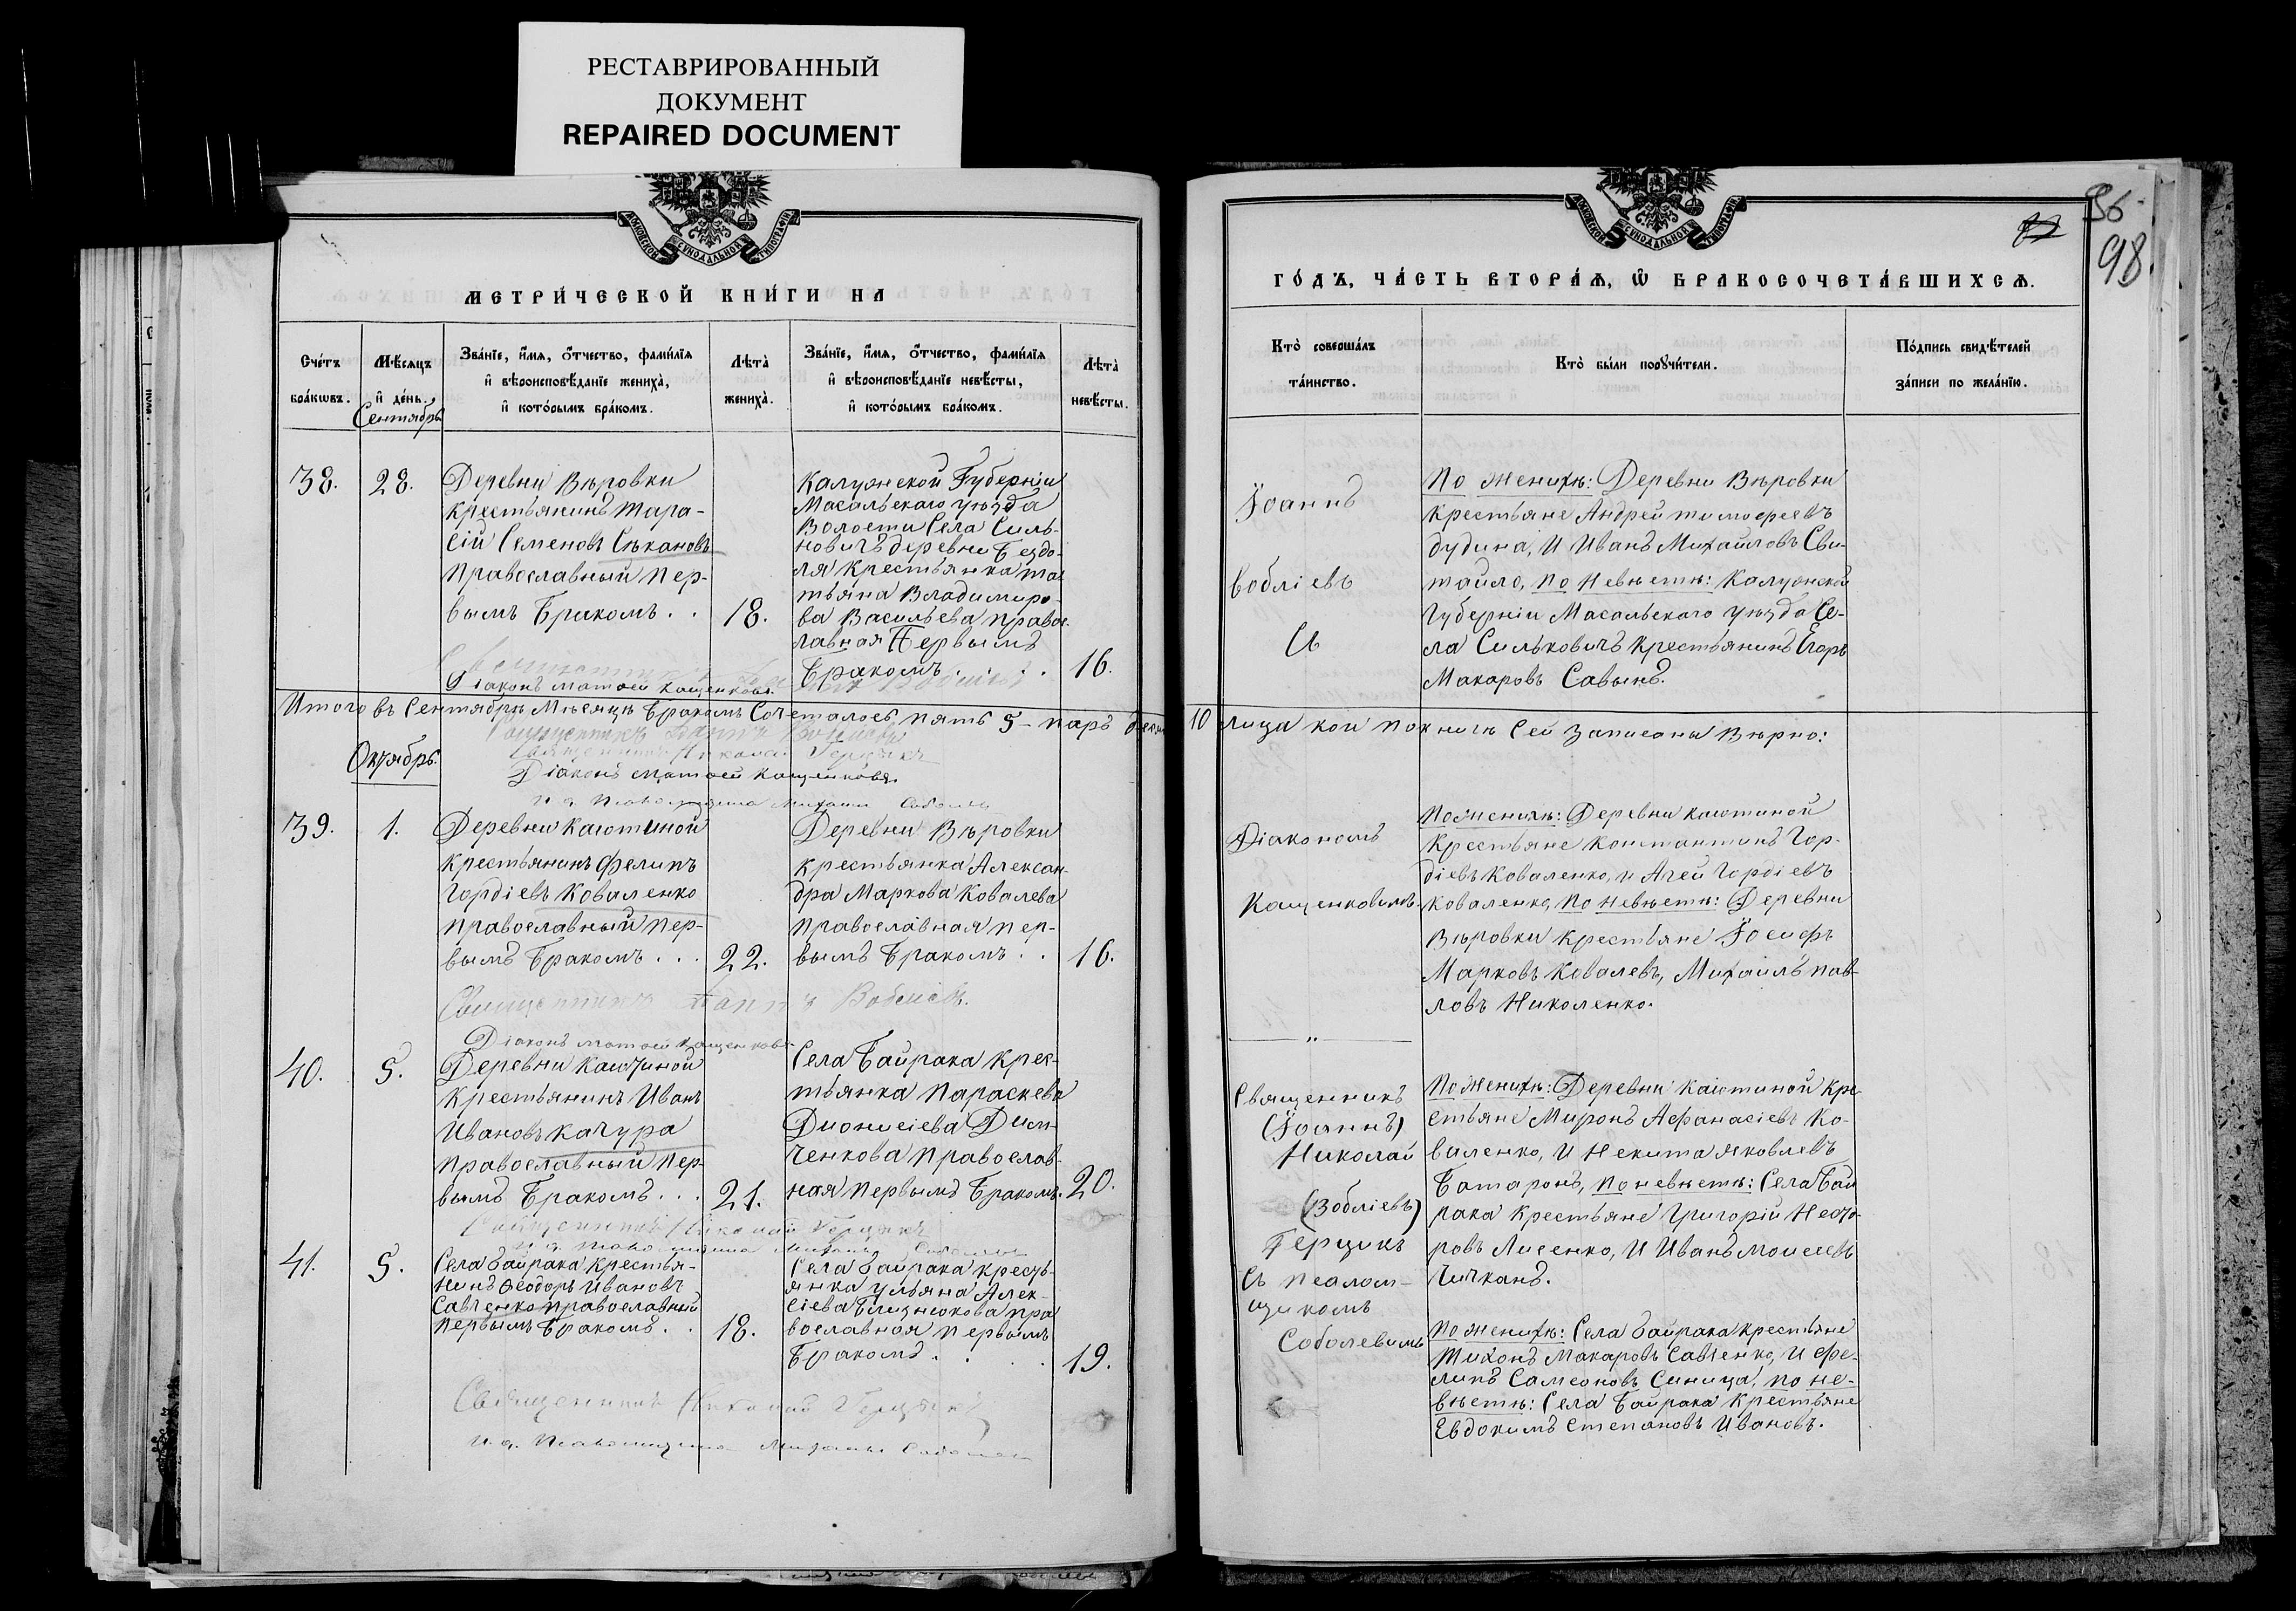 РЕСТАВРИРОВАННЫЙ
ДОКУМЕНТ
REPAIRED DOCUMENT
МОСКОВСКОЙ СѴНОДАЛЬНОЙ ТИПОГРАФІИ
МЕТРИ́ЧЕСКОЙ КНИ́ГИ НА
Сче́тъ
бра́кѡвъ.
Мѣ́сяцъ
и де́нь.
Сентябрь
Зва́нїе, и҆́мѧ, ѻ҆́тчество, фами́лїѧ
и҆ вѣроисповѣ́данїе жениха̀,
и҆ кото́рымъ бра́комъ.
Лѣта̀
жениха̀.
Зва́нїе, и҆́мѧ, ѻ҆́тчество, фами́лїѧ
и҆ вѣроисповѣ́данїе невѣ́сты,
и҆ кото́рымъ бра́комъ.
Лѣта̀
невѣ́сты.
38.
28.
Деревни Вѣровки
крестьянинъ Тара-
сій Семеновъ Сѣкановъ
православный пер-
вымъ бракомъ . .
18.
Калужской Губерніи
Масальскаго уѣзда
Волости Села Силь-
новичъ деревни Бездо-
ля крестьянка Та-
тьяна Владимиро-
ва Васильева правос-
лавная Первымъ
бракомъ . . . .
16.
Діаконъ Матѳей Кащенковъ.
Итого въ Сентябрѣ Мѣсяцѣ Бракомъ Сочеталось пять 5 - паръ
Священникъ Іоаннъ Вобліевъ
Священникъ Николай Герцикъ
Октябрь.
Діаконъ Матѳей Кащенковъ.
И. д. Псаломщика Михаилъ Соболев
39.
1.
Деревни Каютиной
крестьянинъ Филипъ
Гордіевъ Коваленко
православный пер-
вымъ бракомъ . . .
22.
Деревни Вѣровки
крестьянка Алексан-
дра Маркова Ковалева
православная пер-
вымъ бракомъ . .
16.
Священникъ Іоаннъ Вобліевъ.
Діаконъ Матѳей Кащенковъ.
40.
5.
Деревни Каютиной
крестьянинъ Иванъ
Ивановъ Качура
православный пер-
вымъ бракомъ . . .
21.
Села Байрака крес-
тьянка Параскева
Дионисіева Дим-
ченкова православ-
ная первымъ бракомъ.
20.
Священникъ Николай Герцикъ
И. д. Псаломщика Михаилъ Соболев
41.
5.
Села Байрака крестья-
нинъ Ѳеодоръ Ивановъ
Савченко православный
первымъ бракомъ . .
18.
Села Байрака кресть-
янка Ульяна Алек-
сіева Близнюкова пра
вославная первымъ
бракомъ . . . .
19.
Священникъ Николай Герцикъ
И. д. Псаломщика Михаилъ Соболев
МОСКОВСКОЙ СѴНОДАЛЬНОЙ ТИПОГРАФІИ
98.
ГО́ДЪ, ЧА́СТЬ ВТОРА́Ѧ, Ѡ҆ БРАКОСОЧЕТА́ВШИХСѦ.
Кто̀ соверша́лъ
та́инство.
Кто̀ бы́ли порꙋчи́тели.
По́дпись свидѣ́телей
за́писи по жела́нїю.
Іоаннъ
Вобліевъ
Съ
По женихѣ: Деревни Вѣровки
крестьяне Андрей Тимоѳеевъ
Дудина, и Иванъ Михайловъ Сви-
тайло, по невѣстѣ: Калужской
Губерніи Масальскаго уѣзда Се-
ла Сильковичъ крестьянинъ Егоръ
Макаровъ Савынъ.
10 лица кои по книгѣ сей записаны вѣрно:
Діакономъ
Кащенковымъ.
По женихѣ: Деревни Каютиной
крестьяне Константинъ Гор-
діевъ Коваленко, и Агей Гордіевъ
Коваленко, по невѣстѣ: Деревни
Вѣровки крестьяне Іосифъ
Марковъ Ковалевъ, Михаилъ Пав-
ловъ Николенко.
„
Священникъ
(Іоаннъ)
Николай
(Вобліевъ)
Герцикъ
Съ псалом-
щикомъ
Соболевымъ
По женихѣ: Деревни Каютиной кре-
стьяне Миронъ Афанасіевъ Ко-
валенко, и Никита Яковлевъ
Батаронъ, по невѣстѣ: Села Бай
рака крестьяне Григорій Несто-
ровъ Лисенко, и Иванъ Моисеевъ
Чичканъ.
По женихѣ: Села Байрака крестьяне
Тихонъ Макаровъ Савченко, и Фи-
липъ Самсоновъ Синица, по не-
вѣстѣ: Села Байрака крестьяне
Евдокимъ Степановъ Ивановъ.